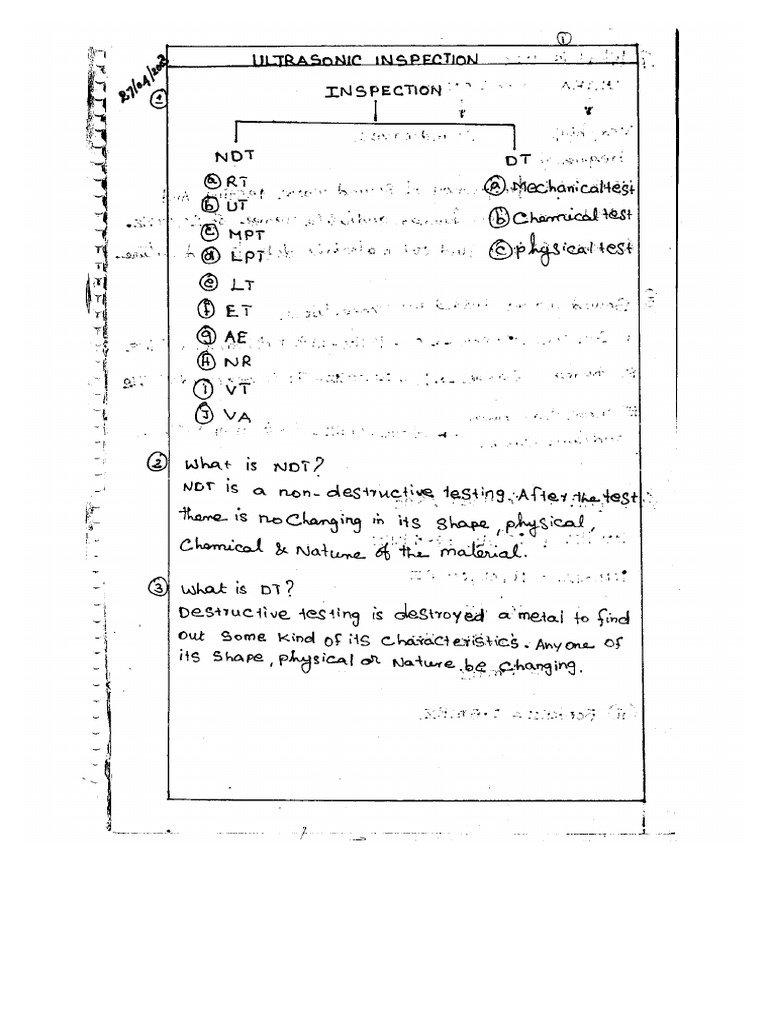 ①
ULTRASONIC INSPECTION
27/04/200
① INSPECTION
NDT DT
ⓐ RT ⓐ Mechanical test
ⓑ UT ⓑ Chemical test
ⓒ MPT ⓒ physical test
ⓓ LPT
ⓔ LT
ⓕ ET
ⓖ AE
ⓗ NR
ⓘ VT
ⓙ VA
② What is NDT?
NDT is a non-destructive testing. After the test
there is no changing in its shape, physical,
Chemical & Nature of the material.
③ What is DT?
Destructive testing is destroyed a metal to find
out some kind of its characteristics. Any one of
its shape, physical or Nature be changing.